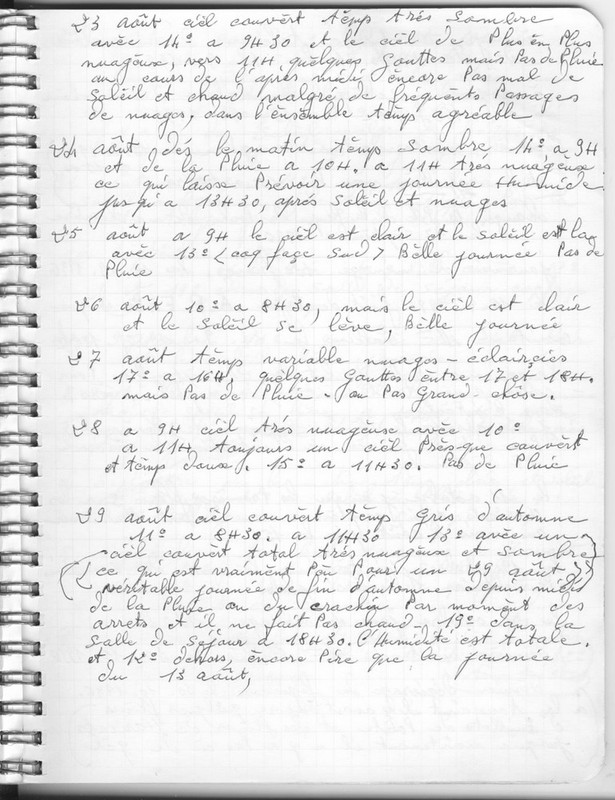 23 août ciél couvèrt tèmps trés Sombre
avéc 14º a 9H30 et le ciél de Plus en Plus
nuagéux, vers 11H, quélques Gouttes mais Pas de Pluie
au cours de l'aprés midi, èncore Pas mal de
Soléil et chaud malgré de fréquénts Passages
de nuages, dans l'énsemble tèmps agréable
24 août dés le matin tèmps Sombre 14º a 9H
et de la Pluie a 10H. a 11H trés nuagéuse
ce qui laisse Prévoir une journée Humide
jusqu'a 13H30, aprés Soléil et nuages
25 août a 9H le ciél est clair et le Soléil est la
avéc 13º (coq face Sud) Bélle journée Pas de
Pluie
26 août 10º a 8H30, mais le ciél est clair
et le Soléil Se lève, Bélle journée
27 août tèmps variable nuages - éclaircies
17º a 16H, quélques Gouttes èntre 17 et 18H.
mais Pas de Pluie - ou Pas Grand-chose.
28 a 9H ciél trés nuagéuse avéc 10º
a 11H toujours un ciél Présque couvèrt
et tèmps doux. 15º a 11H30. Pas de Pluie
29 août ciél couvèrt tèmps Gris d'automne
11º a 8H30. a 11H30 13º avéc un
ciél couvèrt total trés nuagéux et Sombre
ce qui est vraiment Peu Pour un 29 août
véritable journée de fin d'automne depuis midi
de la Pluie ou du crachin Par momènt des
arrets et il ne fait Pas chaud 19º dans la
Salle de Séjour a 18H30. l'Humidité est totale.
et 12º dehors, èncore Pire que la journée
du 13 août,